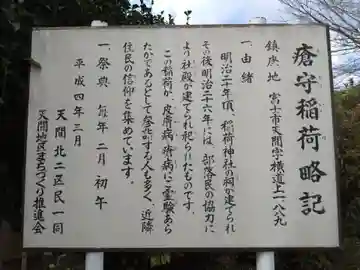 瘡守稲荷略記
鎮座地 富士市天間字横道上一八八九
一 由緒
明治二十年頃、稲荷神社の祠が建てられ
その後明治二十六年には、部落民の協力に
より社殿が建てられ祀られたものです。
この稲荷が、皮膚病、瘡病にご霊験あら
たかであるとして祭祀する人も多く、近隣
住民の信仰を集めています。
一 祭典 毎年二月初午
平成四年三月
天間北一区民一同
天間地区まちづくり推進会